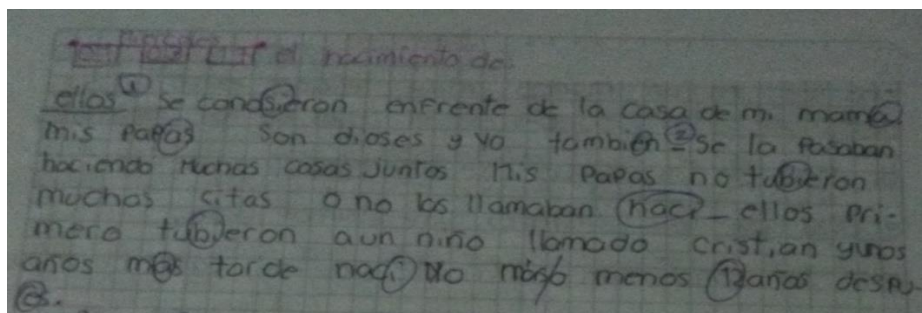 el nacimiento de
ellos ① se condsieron enfrente de la casa de mi mama
mis papas son dioses y yo tambien ② se la pasaban
haciendo muchas cosas juntos mis papas no tubieron
muchas citas o no los llamaban haci_ ellos pri-
mero tubieron aun niño llamado cristian yunos
años mas tarde naci yo mas o menos 12 años despu-
es.